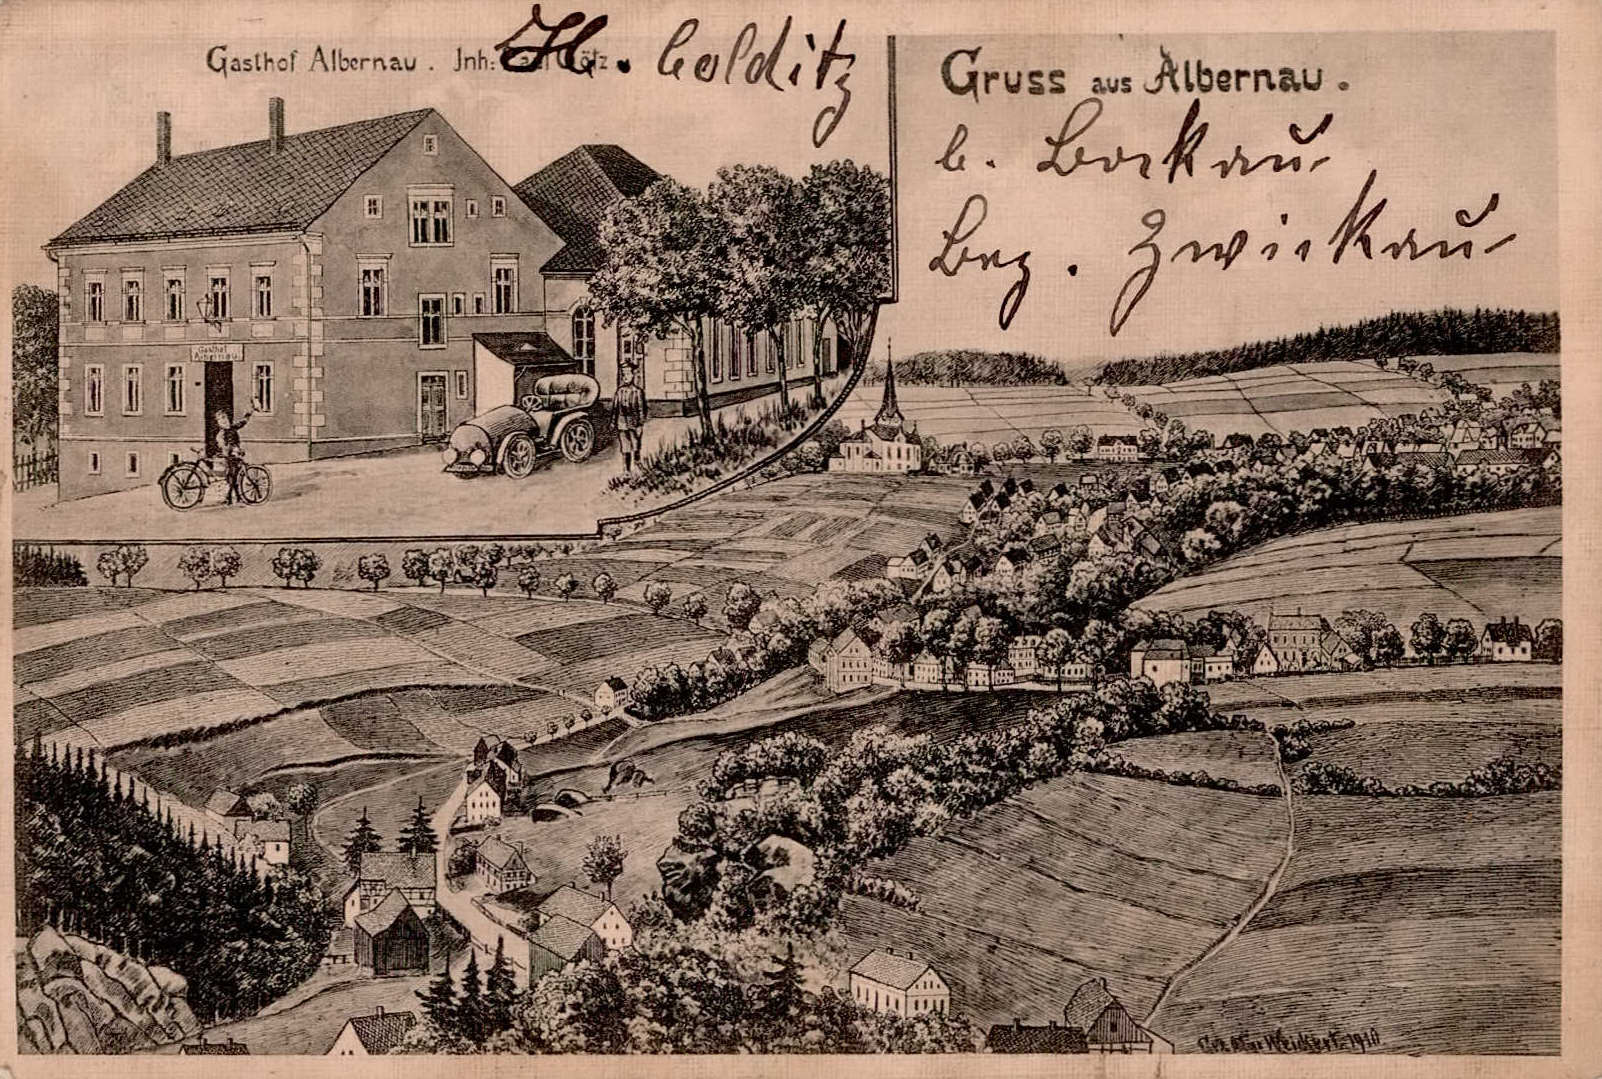 Gasthof Albernau. Inh:
H. Colditz
Gruss aus Albernau.
b. Bockau
Bez. Zwickau
Gasthof
Albernau
Weickert 1910